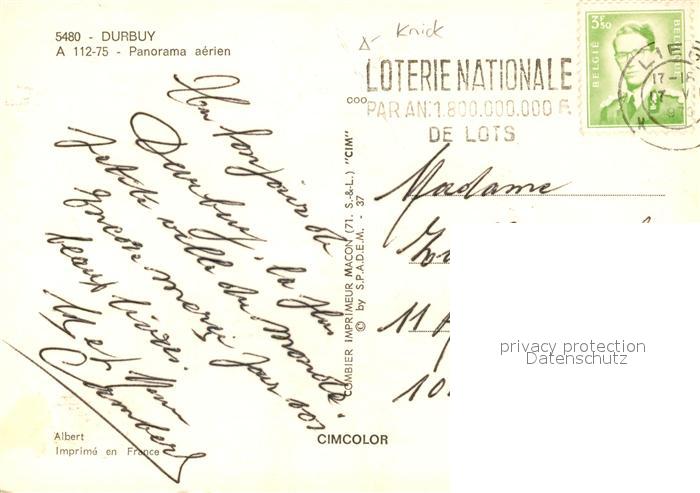 5480 - DURBUY
A 112-75 - Panorama aérien
Knick
LOTERIE NATIONALE
PAR AN: 1.800.000.000 F.
DE LOTS
3F50
BELGIË
BELGIQUE
17-1
Un bonjour de
Durbuy, la plus
petite ville du monde.
Encore merci pour vos
beaux
M et Mme
COMBIER IMPRIMEUR MACON (71. S.-&-L.) "CIM"
© by S.P.A.D.E.M. - 37
Madame
11
10
privacy protection
Datenschutz
Albert
Imprimé en France
CIMCOLOR